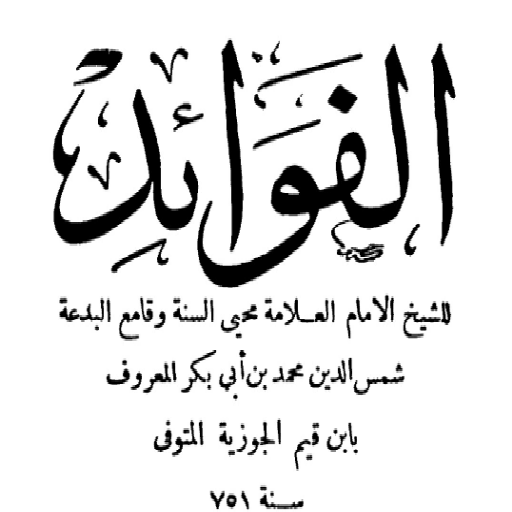 الفَوَائِد
للشيخ الامام العـلامة محيي السنة وقامع البدعة
شمس الدين محمد بن أبي بكر المعروف
بابن قيم الجوزية المتوفى
سـنة ٧٥١